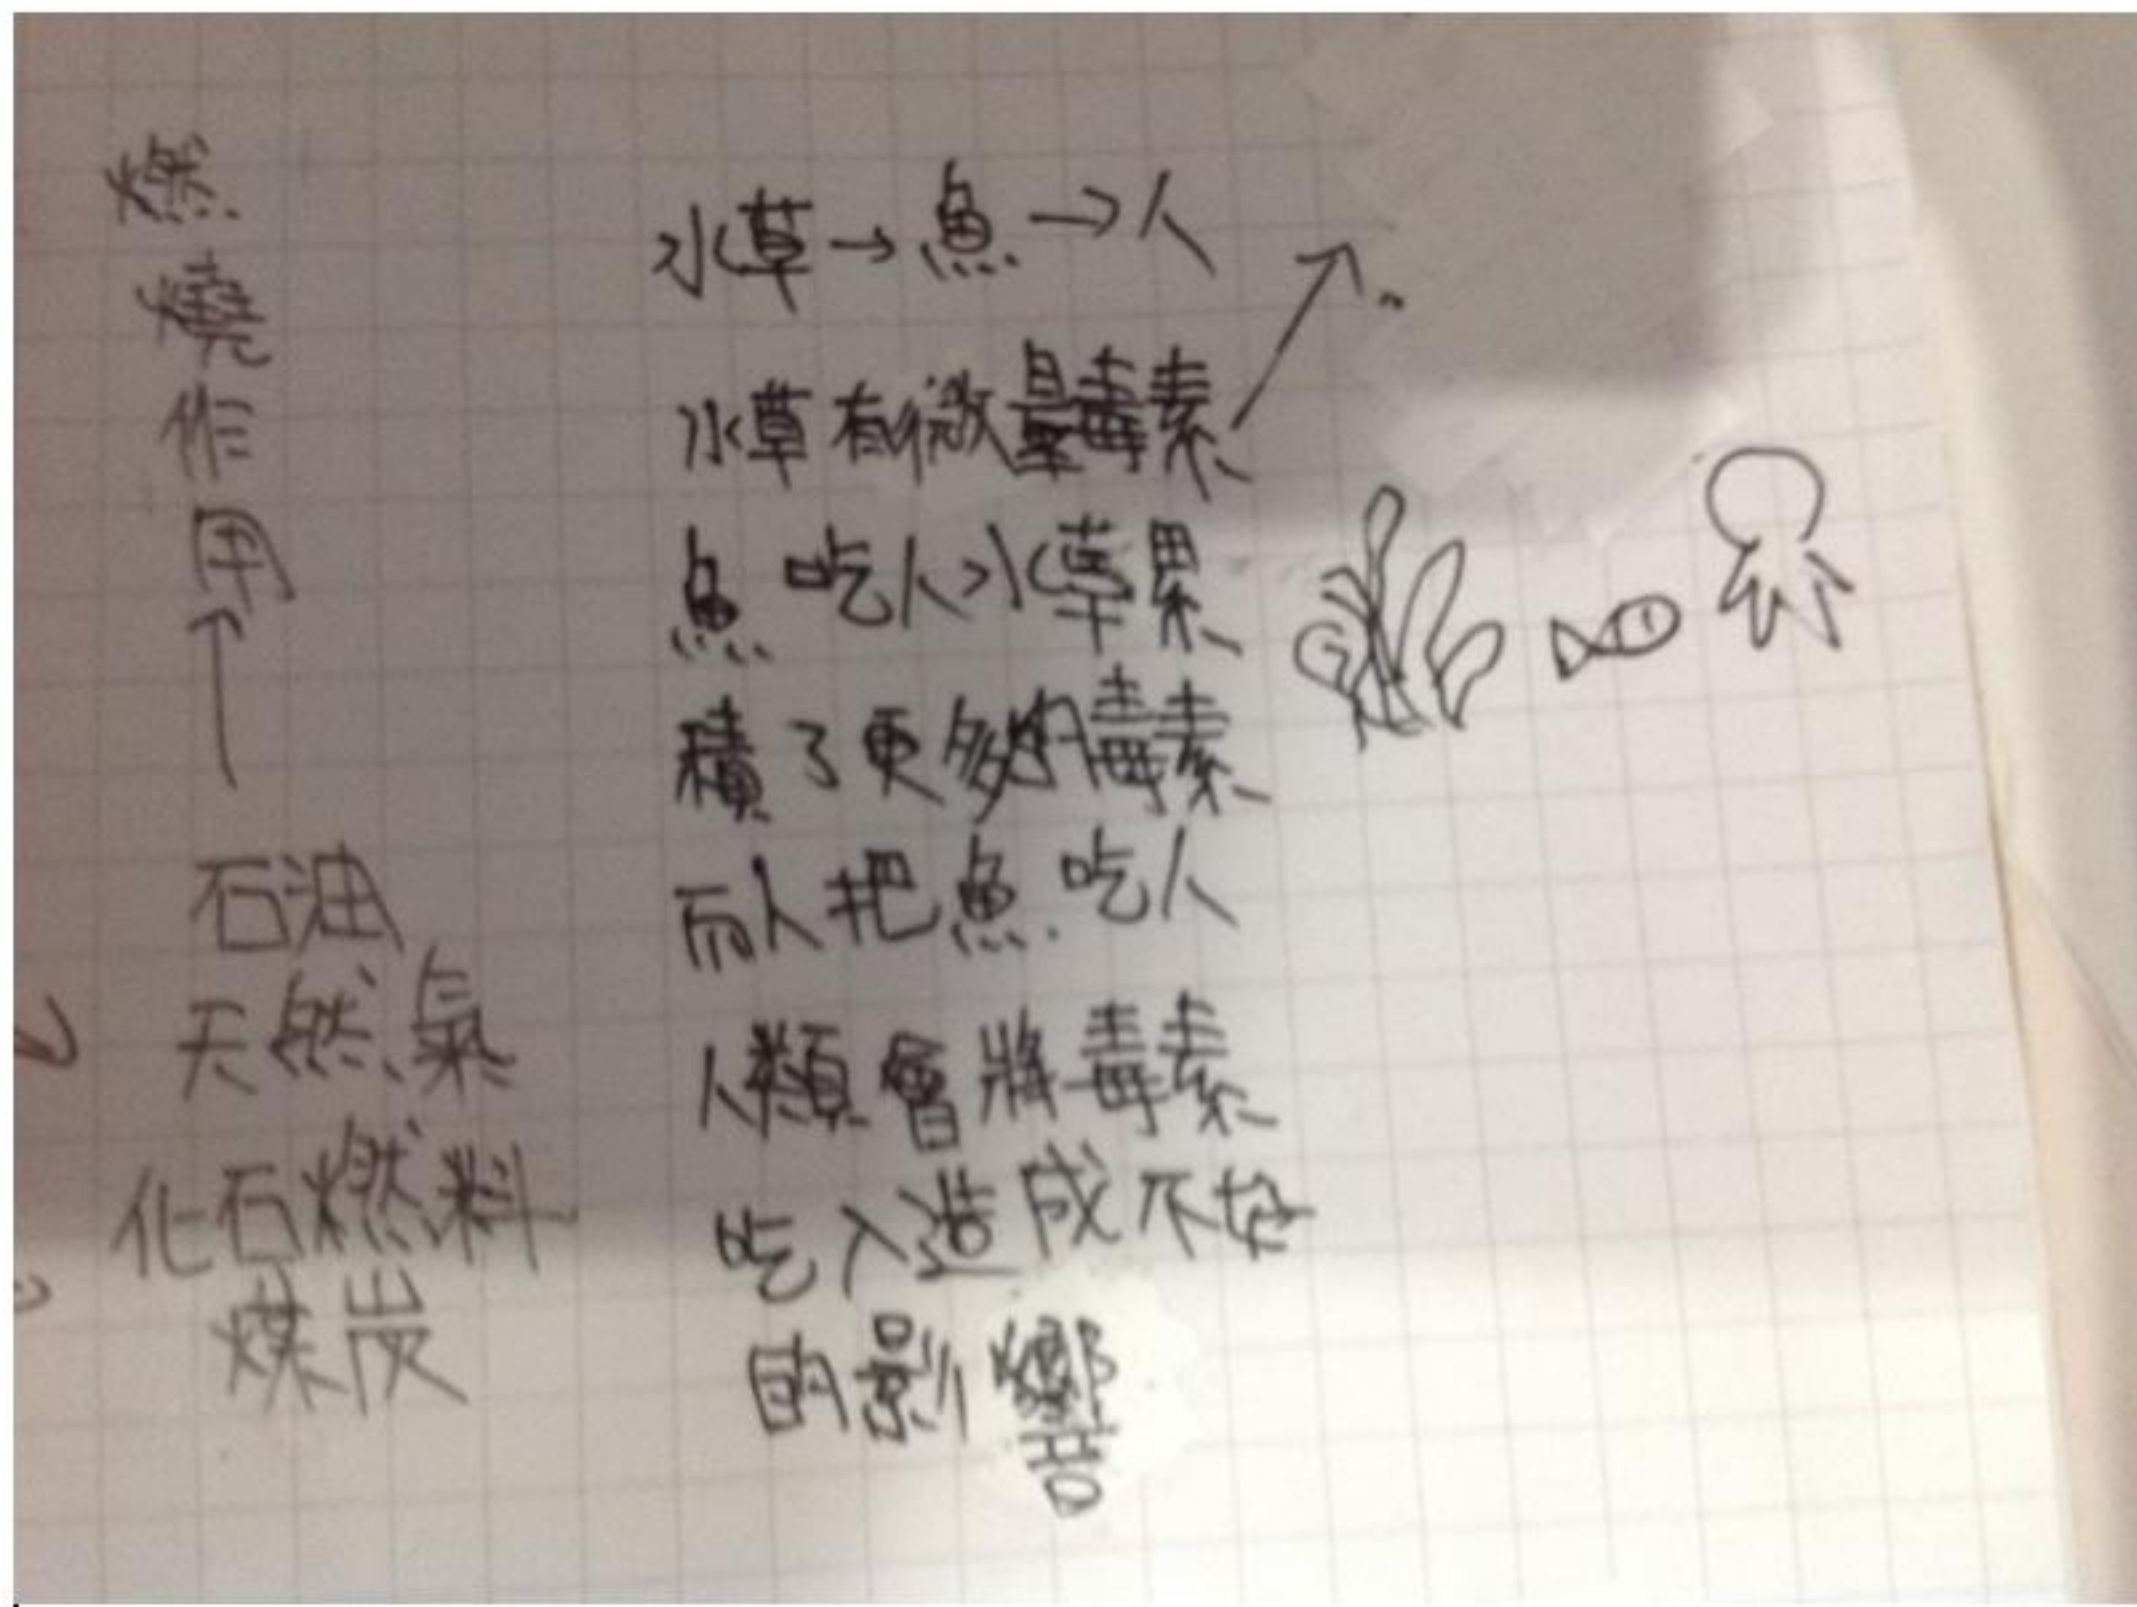 燃
燒
作
用
石油
天然氣
化石燃料
煤炭
水草→魚→人
水草有微量毒素
魚吃人水草累
積了更多的毒素
而人把魚吃人
人類會將毒素
吃入造成不好
的影響